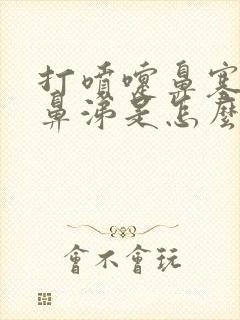 打噴嚏鼻塞
鼻涕是怎麼
會不會玩